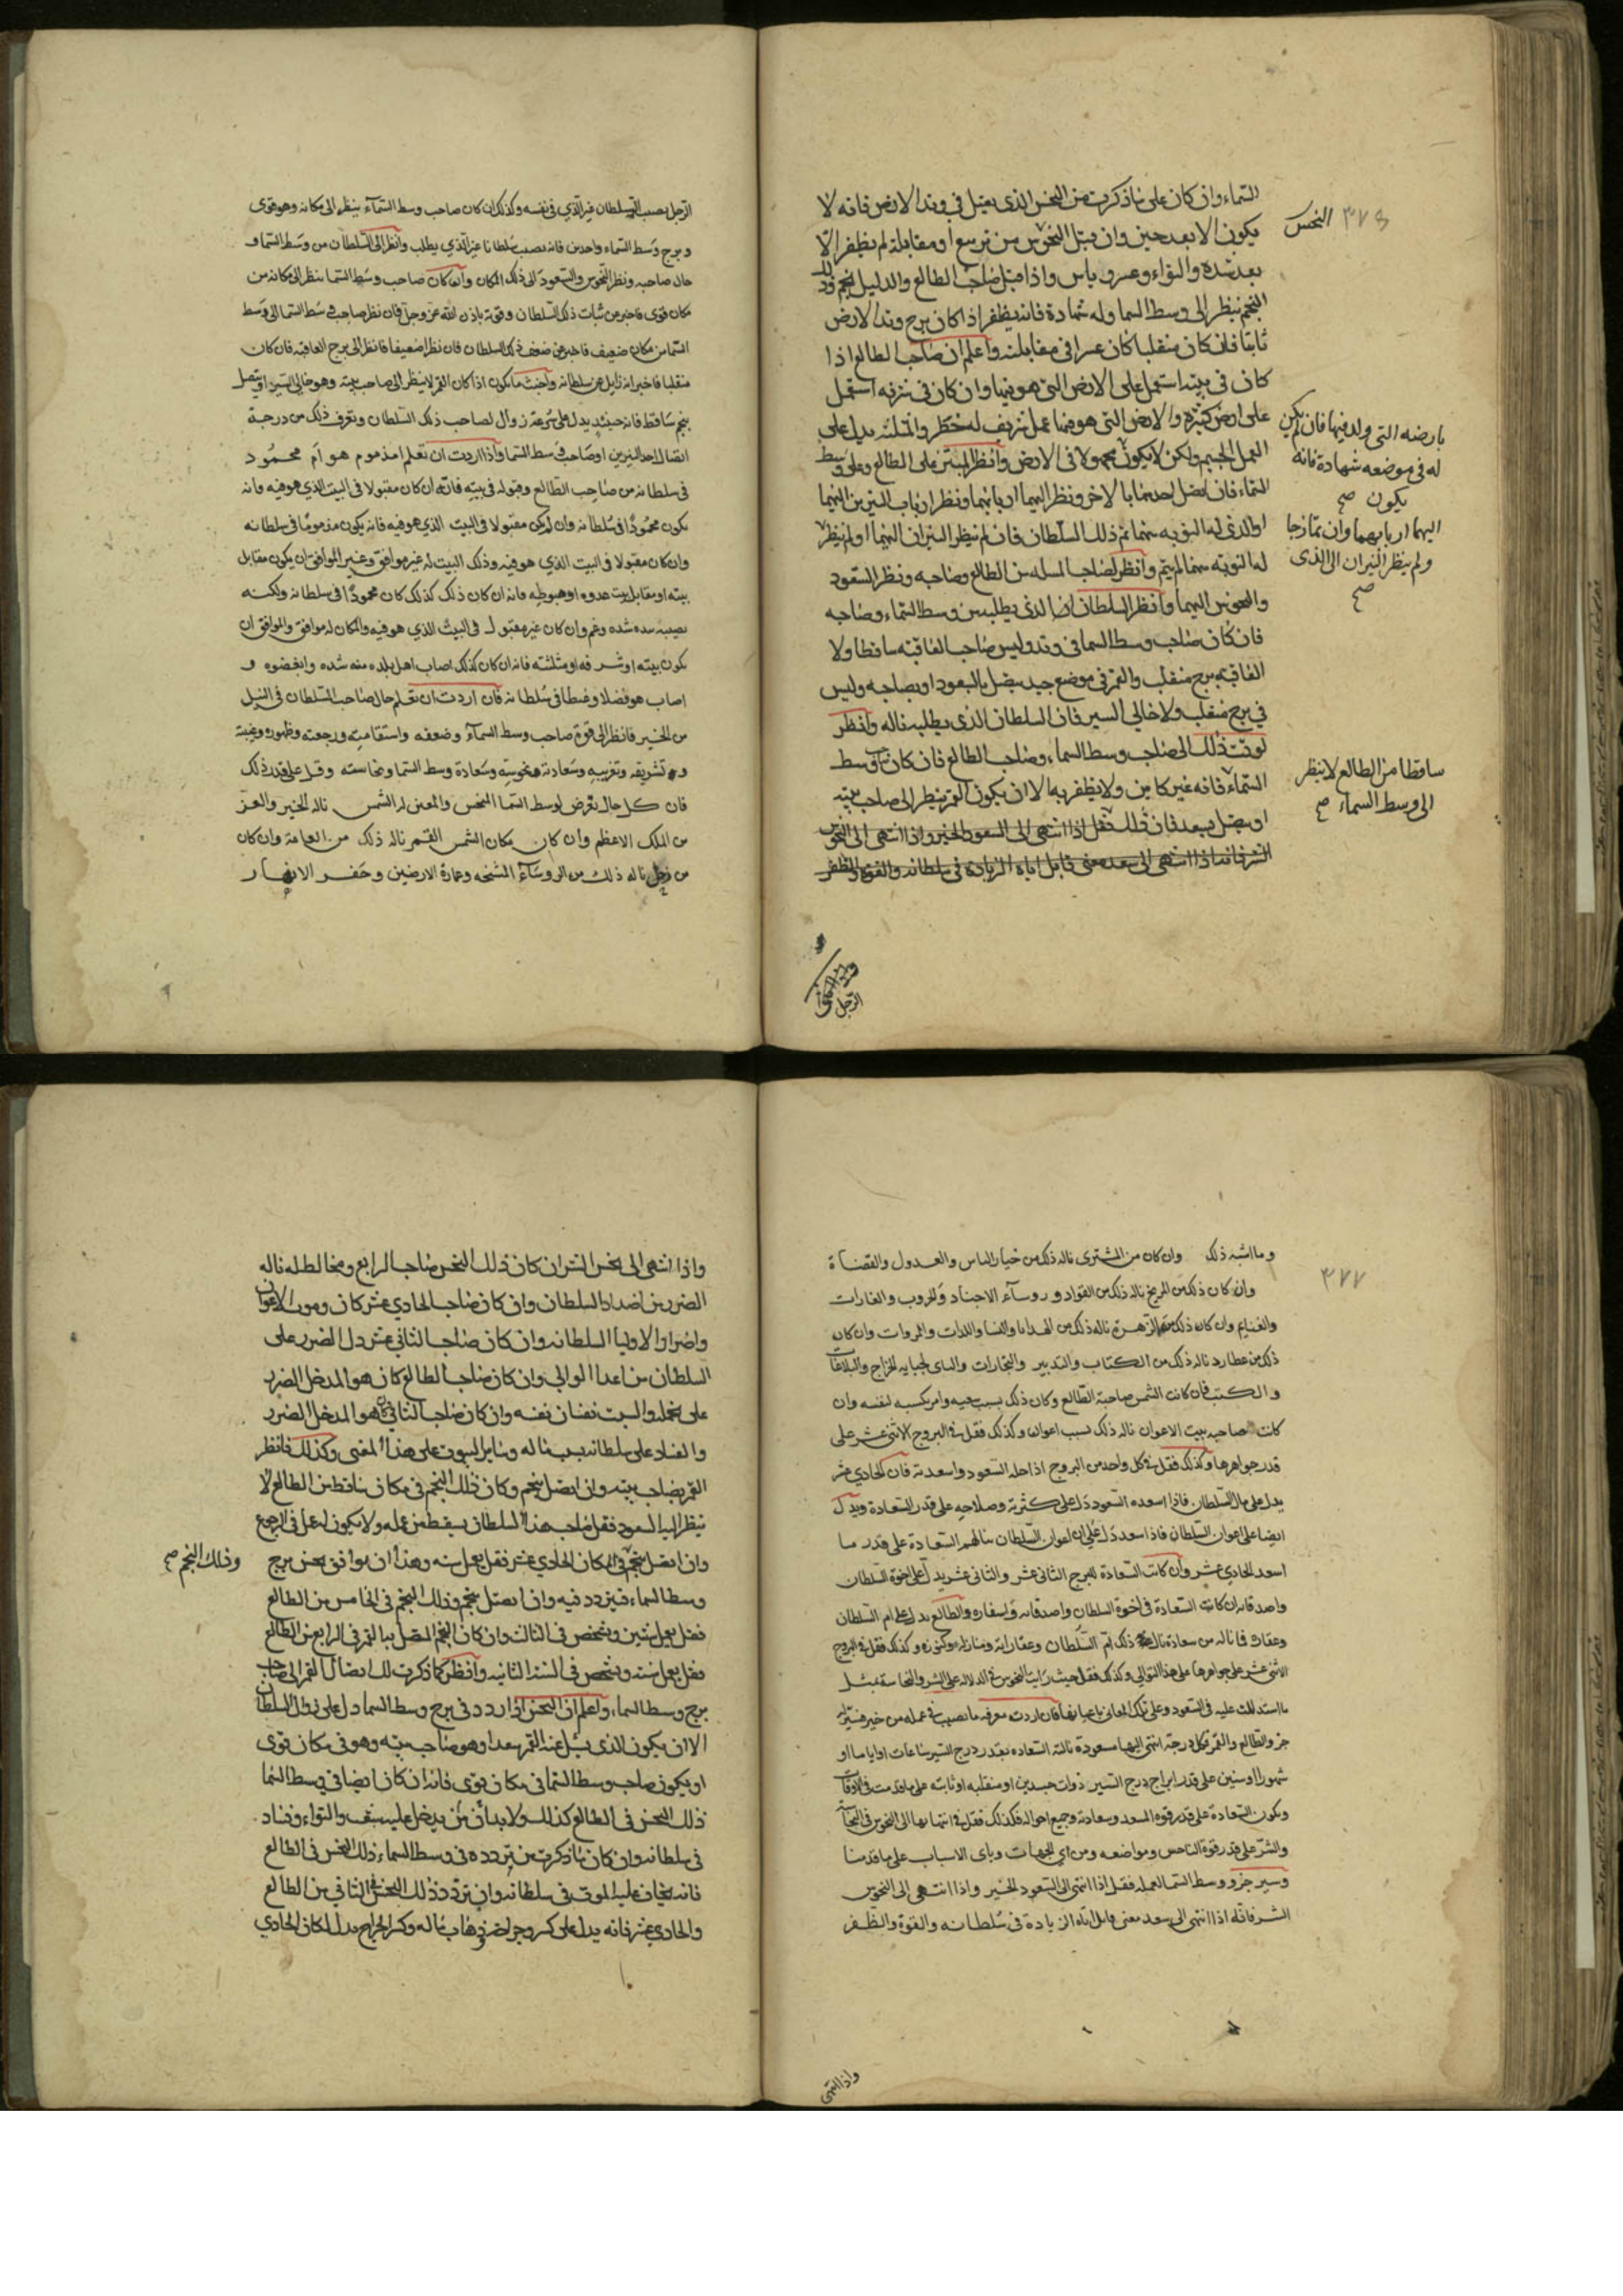 السماء وان كان على ما ذكرت من النحس الذي يقبل في وتد الارض فانه لا
يكون الا بعد حين وان قبل النحوس من تربيع او مقابلة لم يظفر الا
بعد شدة والتواء وعسر وياس واذا قبل صاحب الطالع والدليل لنجم وذلك
النجم ينظر الى وسط السما وله شهادة فانه يظفر اذا كان برج وتد الارض
ثابتا فان كان منقلبا كان عسرا في مقابلته واعلم ان صاحب الطالع اذا
كان في بيته استعمل على الارض التي هو فيها وان كان في شرفه استعمل
على ارض كثيرة والارض التي هو فيها عمل شريف له خطر والمثلثه يدل على
العمل الجسيم ولكن لا يكون مجهولا في الارض وانظر المبتز على الطالع وعلى وسط
السماء فان اتصل احدهما بالاخر ونظر اليهما اربابهما ونظر ارباب النيرين اليهما
او الذي له النوبه منهما تم ذلك السلطان فان لم ينظر النيران اليهما او لم ينظر
له النوبه منهما لم يتم وانظر لصاحب المسله من الطالع وصاحبه ونظر السعود
والنحوس اليهما وانظر السلطان ايضا الذي يطلب من وسط السماء وصاحبه
فان كان صاحب وسط السما في وتد وليس صاحب العاقبه ساقطا ولا
العاقبه برج منقلب والقمر في موضع جيد يتصل بالسعود او بصاحبه وليس
في برج منقلب ولا خالي السير فان السلطان الذي يطلب يناله وانظر
لوقت ذلك الى صاحب وسط السماء وصاحب الطالع فان كان وسط
السماء فانه غير كاين ولا يظفر به الا ان يكون القمر ينظر الى صاحب بيته
او يتصل بسعد فان ذلك فقل اذا انتهى الى السعود الخير واذا انتهى الى النحوس
الشر فانه اذا انتهى الى سعد معنى قابل اتاه الزيادة في سلطانه والقوة والظفر
النحس
٣٧٦
بارضه التي ولد فيها فان لم يكن
له في موضعه شهادة فانه
يكون صح
اليهما اربابهما وان تمازجا
ولم ينظر النيران الى الذي
صح
ساقطا من الطالع لا ينظر
الى وسط السماء صح
الرجل
الرجل يصيب السلطان غير الذي في نفسه وكذلك ان كان صاحب وسط السماء ينظر الى مكانه وهو قوى
وبرج وسط السماء واحدين فانه يصيب سلطانا غير الذي يطلب وانظر الى السلطان من وسط السما و
حال صاحبه ونظر النحوس والسعود الى ذلك المكان وان كان صاحب وسط السما ينظر الى مكانه من
مكان قوى فاخبر عن ثبات ذلك السلطان وقوته باذن الله عز وجل فان نظر صاحب وسط السما الى وسط
السما من مكان ضعيف فاخبر عن ضعف ذلك السلطان فان نظرا ضعيفا فانظر الى برج العاقبه فان كان
منقلبا فاخبر انه زايل عن سلطانه واخبث ما يكون اذا كان القمر لا ينظر الى صاحب بيته وهو خالي السير او يتصل
بنجم ساقط فانه حينئذ يدل على سرعة زوال لصاحب ذلك السلطان وتعرف ذلك من درجة
اتصال احد النيرين او صاحب وسط السما واذا اردت ان تعلم امذموم هو ام محمود
في سلطانه من صاحب الطالع وقبوله في بيته فانه ان كان مقبولا في البيت الذي هو فيه فانه
يكون محمودا في سلطانه وان لم يكن مقبولا في البيت الذي هو فيه فانه يكون مذموما في سلطانه
وان كان مقبولا في البيت الذي هو فيه وذلك البيت له غير موافق وغير الموافق ان يكون مقابل
بيته او مقابل بيت عدوه او هبوطه فانه ان كان ذلك كذلك كان محمودا في سلطانه ولكنه
يصيبه منه شده وغم وان كان غير مقبول في البيت الذي هو فيه والمكان له موافق والموافق ان
يكون بيته او شرفه او مثلثته فانه ان كان كذلك اصاب اهل بلده منه شده وابغضوه و
اصاب هو فضلا وغبطا في سلطانه فان اردت ان تعلم حال صاحب السلطان في النيل
من الخير فانظر الى قوة صاحب وسط السماء وضعفه واستقامته ورجعته وظهوره وغيبته
و تشريقه وتغريبه وسعادته ونحوسته وسعادة وسط السما ونحاسته وقل على قدر ذلك
فان كل حال يعرض لوسط السما النحس والمعنى له الشمس ناله الخير والعز
من الملك الاعظم وان كان مكان الشمس القمر ناله ذلك من العامة وان كان
من زحل ناله ذلك من الروساء المشيخه وعمارة الارضين وحفر الانهار
وما اشبه ذلك وان كان من المشترى ناله ذلك من خيار الناس والعدول والقضاة
٣٧٧
وان كان ذلك من المريخ ناله ذلك من القواد وروساء الاجناد والحروب والغارات
والغنايم وان كان ذلك من الزهرة ناله ذلك من الهدايا والنسا واللذات والمروات وان كان
ذلك من عطارد ناله ذلك من الكتاب والتدبير والتجارات والجبايه الخراج والبلاغات
والكتب فان كانت الشمس صاحبة الطالع وكان ذلك بسببه وامر يكسبه لنفسه وان
كانت صاحبه بيت الاعوان ناله ذلك بسبب اعوانه وكذلك فقل في البروج الاثنى عشر على
قدر جواهرها وكذلك فقل في كل واحد من البروج اذا حله السعود واسعدته فان الحادي عشر
يدل على مال السلطان فاذا اسعده السعود دل على كثرته وصلاحه على قدر السعادة ويدل
ايضا على اعوان السلطان فاذا سعد دل على ان اعوان السلطان ينالهم السعادة على قدر ما
اسعد الحادي عشر وان كانت السعادة للبرج الثاني عشر والثاني عشر يدل على اخوة السلطان
واصدقايه ان كانت السعادة في اخوة السلطان واصدقايه واسفاره والطالع يدل على ام السلطان
وعقاره فما ناله من سعادة نال ذلك ام السلطان وعقاراته ومنازله وكنوزه وكذلك فقل في البروج
الاثنى عشر على جواهرها على هذا التوالي وكذلك فقل حيث رايت النحوس في الدلاله على الشر والنحاسة بمثل
ما استدللت عليه في السعود وعلى تلك المعاني باعيانها فان اردت معرفه ما يصيب في عمله من خير فسير
جزو الطالع والقمر فكل درجة انتهى اليها مسعودة نالته السعاده بقدر درج التسير ساعات او اياما او
شهورا او سنين على قدر ابراج درج التسير ذوات جسدين او منقلبه او ثابته على ما قدمت في الاوقات
وتكون السعادة على قدر قوة المسعد وسعادته وجميع احواله فكذلك فقل في انتهايها الى النحوس في النحاسة
والشر على قدر قوة الناحس ومواضعه ومن اي الجهات وباى الاسباب على ما قدمنا
وسير جزو وسط السما لعمله فقل اذا انتهى الى السعود الخير واذا انتهى الى النحوس
الشر فانه اذا انتهى الى سعد معنى قابل اتاه الزيادة في سلطانه والقوة والظفر
واذا انتهى
واذا انتهى الى نحس الشر ان كان ذلك النحس صاحب الرابع ومخالطا له ناله
الضرر من اضداد السلطان وان كان صاحب الحادي عشر كان وموت الاعوان
واضرار الاوليا السلطانه وان كان صاحب الثاني عشر دل الضرر على
السلطان من اعدا الوالي وان كان صاحب الطالع كان هو المدخل الضرر
على عمله والسبب نقصان نفسه وان كان صاحب الثاني هو المدخل الضرر
والفساد على سلطانه بسبب ماله وساير البيوت على هذا المعنى وكذلك فانظر
القمر بصاحب بيته وان اتصل بنجم وكان ذلك النجم في مكان ساقط من الطالع لا
ينظر اليه السعود فقل صاحب هذا السلطان يسقط من عمله ولا يكون له عمل في الرجوع
وان اتصل بنجم في المكان الحادي عشر فقل يعمل سنه وهذا ان يوافق نحس برج
وذلك النجم صح
وسط السماء فيتردد فيه وان اتصل بنجم وذلك النجم في الخامس من الطالع
فقل يعمل سنتين ويشخص في الثالث وان كان النجم المتصل به القمر في الرابع من الطالع
فقل يعمل سنه ويشخص في السنة الثانيه وانظر كما ذكرت لك اتصال القمر الى صاحب
برج وسط السماء واعلم ان النحس اذا تردد في برج وسط السما دل على زوال السلطان
الا ان يكون الذي يقبل عنه القمر سعدا وهو صاحب بيته وهو في مكان قوى
او يكون صاحب وسط السما في مكان قوى فانه ان كان ايضا في وسط السما
ذلك النحس في الطالع كذلك ولا بد ان يدخل عليه شغب والتواء وفساد
في سلطانه وان كان ما ذكرت من تردده في وسط السماء ذلك النحس في الطالع
فانه يخاف عليه الموت في سلطانه وان تردد ذلك النحس في الثاني من الطالع
والحادي عشر فانه يدل على كسر وجراحه في ذهاب ماله وكسر الخراج بدل المكان الحادي